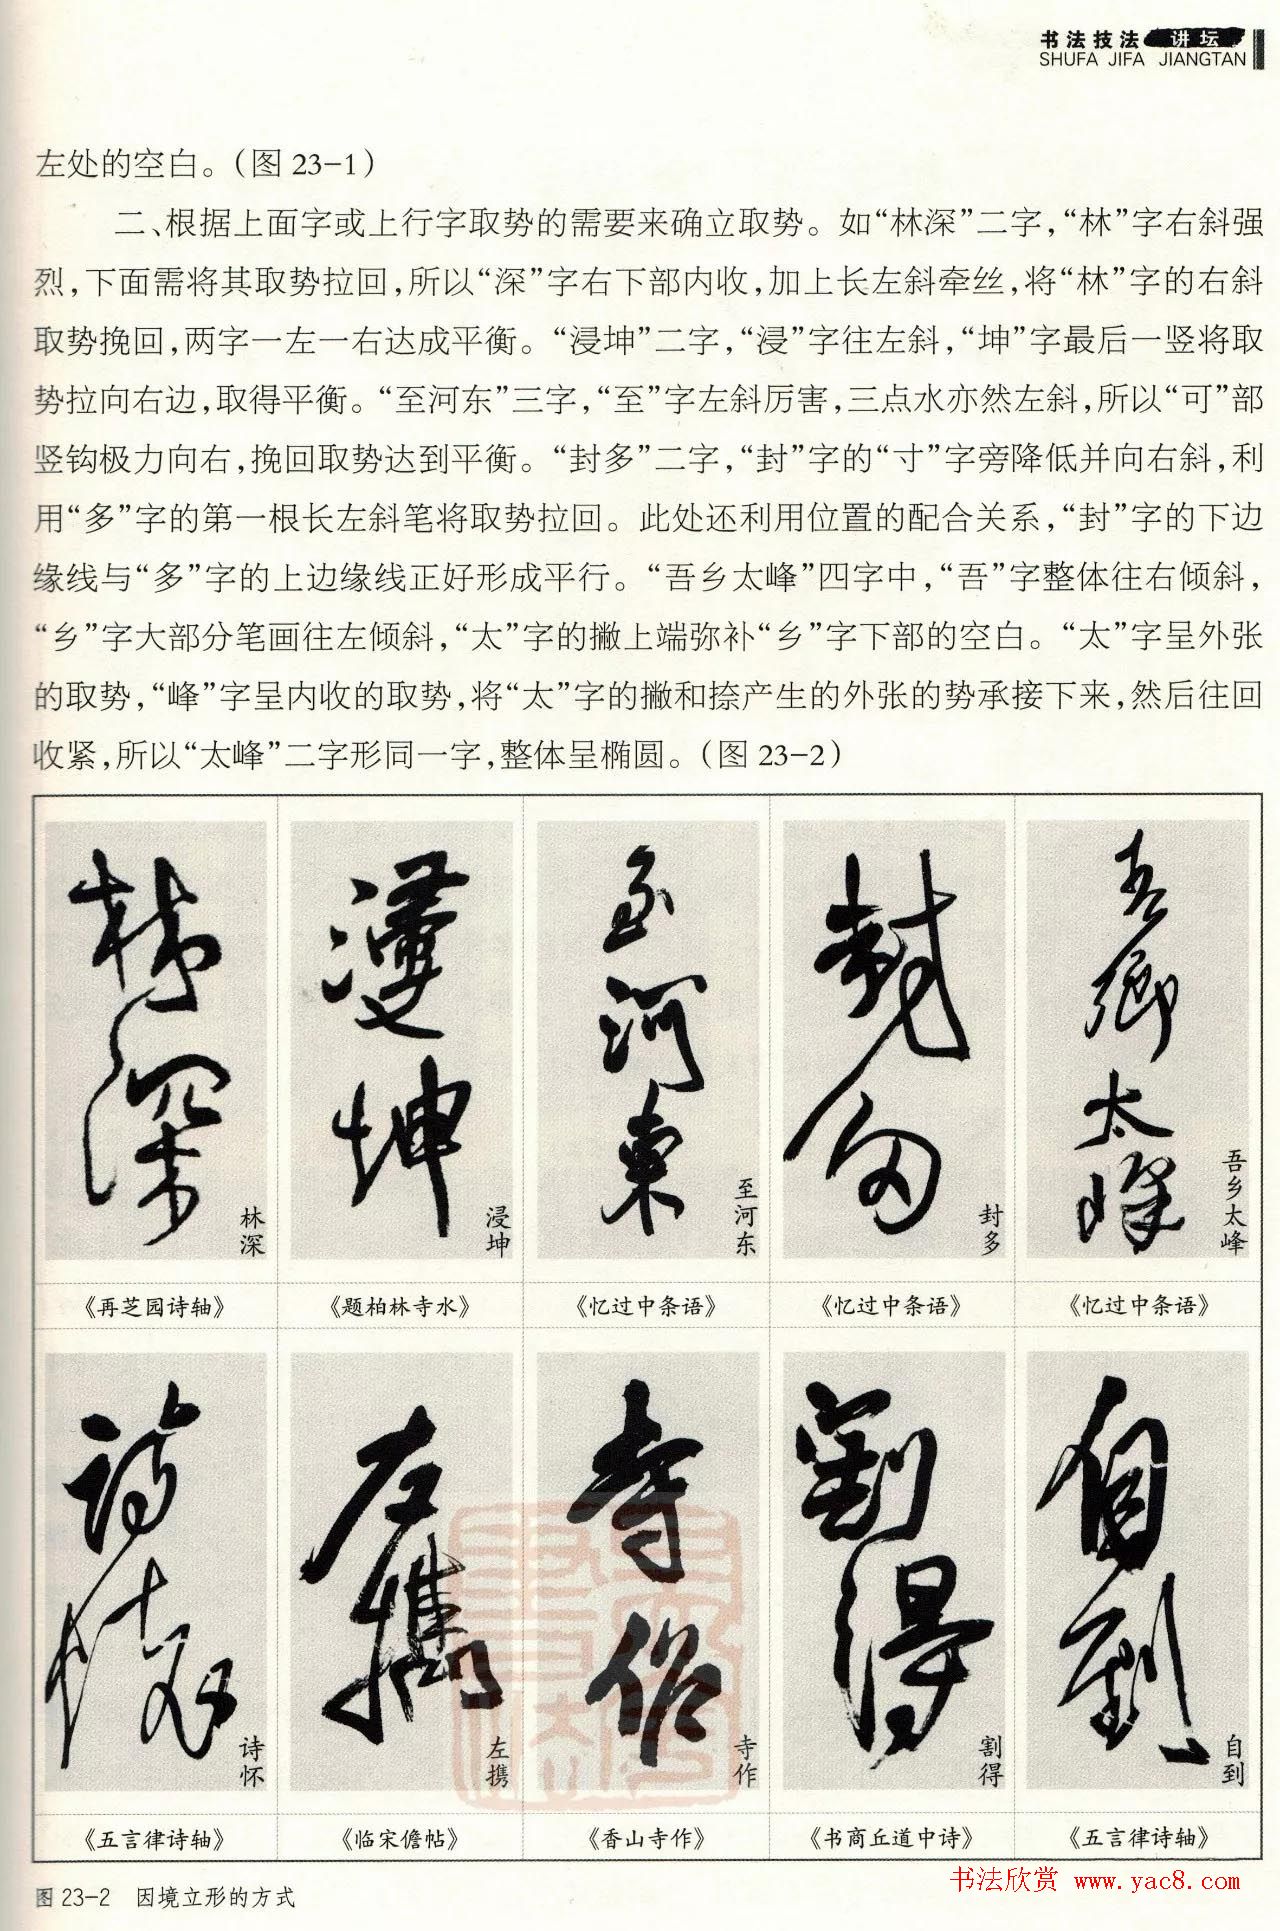 书法技法 讲坛
SHUFA JIFA JIANGTAN
左处的空白。（图 23-1）
二、根据上面字或上行字取势的需要来确立取势。如“林深”二字，“林”字右斜强
烈，下面需将其取势拉回，所以“深”字右下部内收，加上长左斜牵丝，将“林”字的右斜
取势挽回，两字一左一右达成平衡。“浸坤”二字，“浸”字往左斜，“坤”字最后一竖将取
势拉向右边，取得平衡。“至河东”三字，“至”字左斜厉害，三点水亦然左斜，所以“可”部
竖钩极力向右，挽回取势达到平衡。“封多”二字，“封”字的“寸”字旁降低并向右斜，利
用“多”字的第一根长左斜笔将取势拉回。此处还利用位置的配合关系，“封”字的下边
缘线与“多”字的上边缘线正好形成平行。“吾乡太峰”四字中，“吾”字整体往右倾斜，
“乡”字大部分笔画往左倾斜，“太”字的撇上端弥补“乡”字下部的空白。“太”字呈外张
的取势，“峰”字呈内收的取势，将“太”字的撇和捺产生的外张的势承接下来，然后往回
收紧，所以“太峰”二字形同一字，整体呈椭圆。（图 23-2）
林深
浸坤
至河东
封多
吾乡太峰
《再芝园诗轴》
《题柏林寺水》
《忆过中条语》
《忆过中条语》
《忆过中条语》
诗怀
左携
寺作
割得
自到
《五言律诗轴》
《临宋儋帖》
《香山寺作》
《书商丘道中诗》
《五言律诗轴》
图 23-2 因境立形的方式
书法欣赏 www.yac8.com